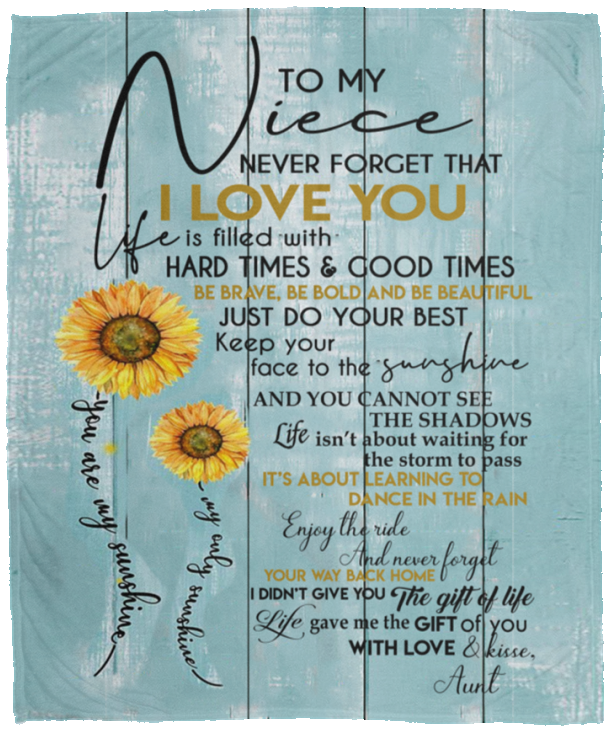 TO MY
Niece
NEVER FORGET THAT
I LOVE YOU
Life is filled with
HARD TIMES & GOOD TIMES
BE BRAVE, BE BOLD AND BE BEAUTIFUL
JUST DO YOUR BEST
Keep your
face to the sunshine
AND YOU CANNOT SEE
THE SHADOWS
Life isn't about waiting for
the storm to pass
IT'S ABOUT LEARNING TO
DANCE IN THE RAIN
Enjoy the ride
And never forget
YOUR WAY BACK HOME
I DIDN'T GIVE YOU The gift of life
Life gave me the GIFT of you
WITH LOVE & kisse,
Aunt
you are my sunshine
my only sunshine